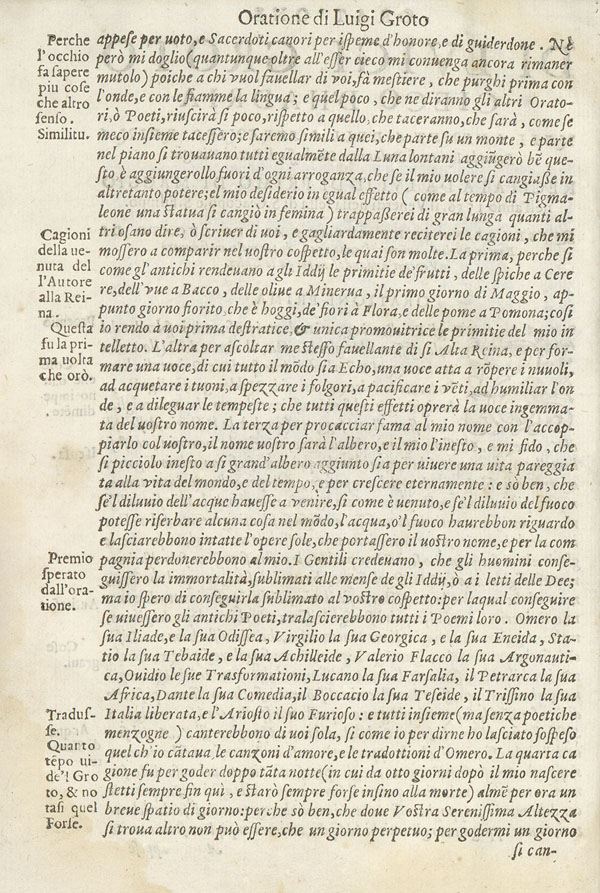 Oratione di Luigi Groto
Perche
l'occhio
fa sapere
piu cose
che altro
senso.
Similitu.
appese per uoto, e Sacerdoti canori per ispeme d'honore, e di guiderdone. Nè
però mi doglio (quantunque oltre all'esser cieco mi conuenga ancora rimaner
mutolo) poiche a chi vuol fauellar di voi, fà mestiere, che purghi prima con
l'onde, e con le fiamme la lingua; e quel poco, che ne diranno gli altri Orato-
ri, ò Poeti, riuscirà si poco, rispetto a quello, che taceranno, che sarà, come se
meco insieme tacessero; e saremo simili a quei, che parte su un monte, e parte
nel piano si trouauano tutti egualmēte dalla Luna lontani aggiūgerò bē que-
sto è aggiungerollo fuori d'ogni arroganza, che se il mio volere si cangiasse in
altretanto potere; el mio desiderio in egual effetto (come al tempo di Pigma-
leone una statua si cangiò in femina) trappasserei di gran lunga quanti al-
tri osano dire, ò scriuer di uoi, e gagliardamente reciterei le cagioni, che mi
Cagioni
della ue-
nuta del
l'Autore
alla Rei-
na.
mossero a comparir nel uostro cospetto, le quai son molte. La prima, perche si
come gl'antichi rendeuano a gli Iddij le primitie de'frutti, delle spiche a Cere
re, dell'vue a Bacco, delle oliue a Minerua, il primo giorno di Maggio, ap-
punto giorno fiorito, che è hoggi, de'fiori à Flora, e delle pome a Pomona; cosi
io rendo à uoi prima destratice, & unica promouitrice le primitie del mio in
Questa
fu la pri-
ma uolta
che orò.
telletto. L'altra per ascoltar me stesso fauellante di si Alta Reina, e per for-
mare una uoce, di cui tutto il mōdo sia Echo, una uoce atta a rōpere i nuuoli,
ad acquetare i tuoni, a spezzare i folgori, a pacificare i vēti, ad humiliar l'on
de, e a dileguar le tempeste; che tutti questi effetti oprerà la uoce ingemma-
ta del uostro nome. La terza per procacciar fama al mio nome con l'accop-
piarlo col uostro, il nome uostro sarà l'albero, e il mio l'inesto, e mi fido, che
si picciolo inesto a si grand'albero aggiunto sia per uiuere una uita pareggia
ta alla vita del mondo, e del tempo, e per crescere eternamente: e sò ben, che
se'l diluuio dell'acque hauesse a venire, si come è uenuto, e se'l diluuio del fuoco
potesse riserbare alcuna cosa nel mōdo, l'acqua, o'l fuoco haurebbon riguardo
e lasciarebbono intatte l'opere sole, che portassero il uostro nome, e per la com
Premio
sperato
dall'ora-
tione.
pagnia perdonerebbono al mio. I Gentili credeuano, che gli huomini conse-
guissero la immortalità, sublimati alle mense de gli Iddij, ò a i letti delle Dee;
ma io spero di conseguirla sublimato al vostro cospetto: per laqual conseguire
se uiuessero gli antichi Poeti, tralascierebbono tutti i Poemi loro. Omero la
sua Iliade, e la sua Odissea, Virgilio la sua Georgica, e la sua Eneida, Sta-
tio la sua Tebaide, e la sua Achilleide, Valerio Flacco la sua Argonauti-
ca, Ouidio le sue Trasformationi, Lucano la sua Farsalia, il Petrarca la sua
Africa, Dante la sua Comedia, il Boccacio la sua Teseide, il Trissino la sua
Tradus-
se.
Quanto
tēpo ui-
de'l Gro
to, & no
tasi quel
Forse.
Italia liberata, e l'Ariosto il suo Furioso: e tutti insieme (ma senza poetiche
menzogne) canterebbono di uoi sola, si come io per dirne ho lasciato sospeso
quel ch'io cātaua le canzoni d'amore, e le tradottioni d'Omero. La quarta ca
gione fu per goder doppo tāta notte (in cui da otto giorni dopò il mio nascere
stetti sempre fin quì, e starò sempre forse insino alla morte) almē per ora un
breue spatio di giorno: perche sò ben, che doue Vostra Serenissima Altezza
si troua altro non può essere, che un giorno perpetuo; per godermi un giorno
si can-